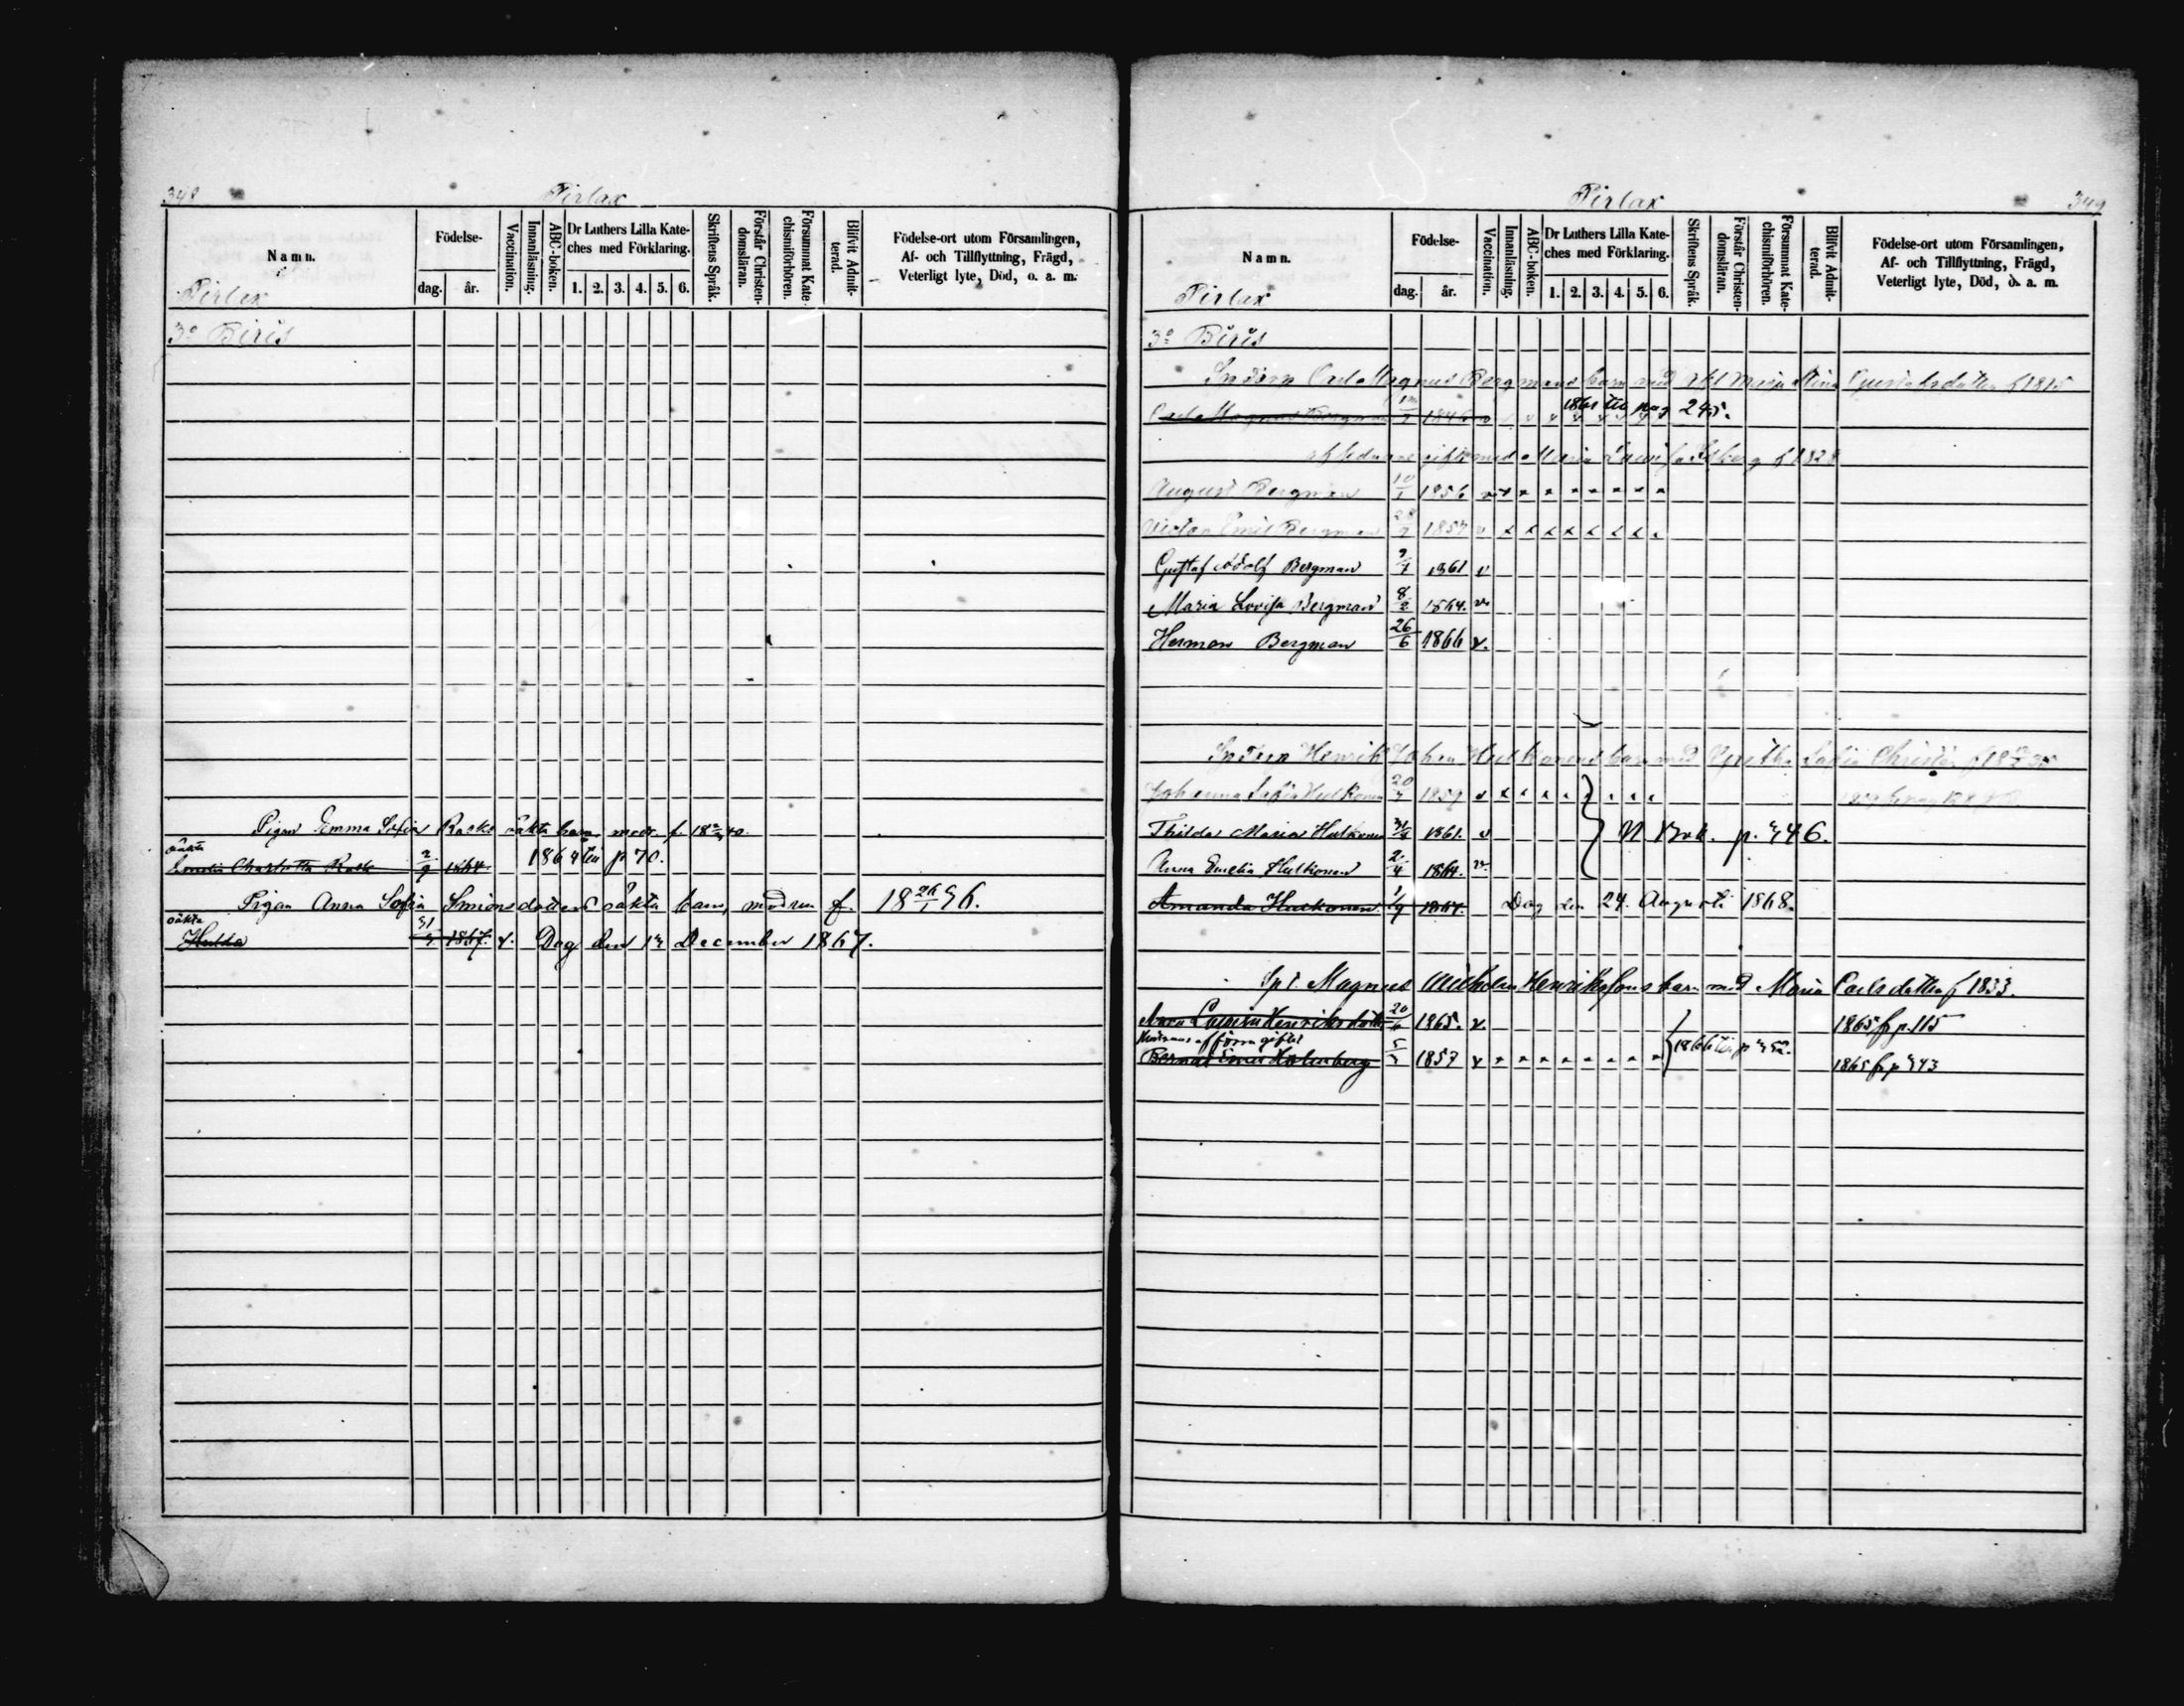 348
Pirlax
Namn.
Födelse-
dag.
år.
Vaccination.
Innanläsning.
ABC-boken.
Dr Luthers Lilla Kate-
ches med Förklaring.
1. 2. 3. 4. 5. 6.
Skriftens Språk.
Förstår Christen-
domsläran.
Försummat Kate-
chismiförhören.
Blifvit Admit-
terad.
Födelse-ort utom Församlingen,
Af- och Tillflyttning, Frägd,
Veterligt lyte, Död, o. a. m.
Pirlax
3o Biris
Pigan Emma Sofia Rasks oäkta barn, modr. f.
oäkta
Emelia Charlotta Rask 2/9 1864. 1864 till p 70.
Pigan Anna Sofia Simonsdotters oäkta barn, modren f. 18 26/1 36.
oäkta
Hulda 1867. v. Dog den 13 December 1867.
Pirlax
349
Namn.
Födelse-
dag.
år.
Vaccination.
Innanläsning.
ABC-boken.
Dr Luthers Lilla Kate-
ches med Förklaring.
1. 2. 3. 4. 5. 6.
Skriftens Språk.
Förstår Christen-
domsläran.
Försummat Kate-
chismiförhören.
Blifvit Admit-
terad.
Födelse-ort utom Församlingen,
Af- och Tillflyttning, Frägd,
Veterligt lyte, Död, o. a. m.
Pirlax
3o Biris
Carl Magnus Bergmans barn med Maja Stina Gustafsdotter f 1815
Carl Magnus Bergman 1846 v 1861 till pag 245.
gift med Maria Lovisa f 1828
August Bergman 10/1 1856 v
Victor Emil Bergman 1857 v
Gustaf Adolf Bergman 1861 v
Maria Lovisa Bergman 8/2 1864. v.
Herman Bergman 26/6 1866 v.
Henrik Johan Hulkonens barn med Sofia
Johanna Sofia Hulkonen 1859 v
Thilda Maria Hulkonen 1861. v N Bok. p. 346.
Anna Emelia Hulkonen 2/4 1864. v.
Amanda Hulkonen. 1/9 1867. Dog den 24. Augusti 1868.
Magnus Wilhelm Henrikssons barn med Maria Carlsdotter f 1833.
Anna Lovisa Henriksdotter 20/6 1865. v. 1865 fr p. 115
förra giftet
Emil Holmberg 1857 v 1866 till p 1865 fr p 343